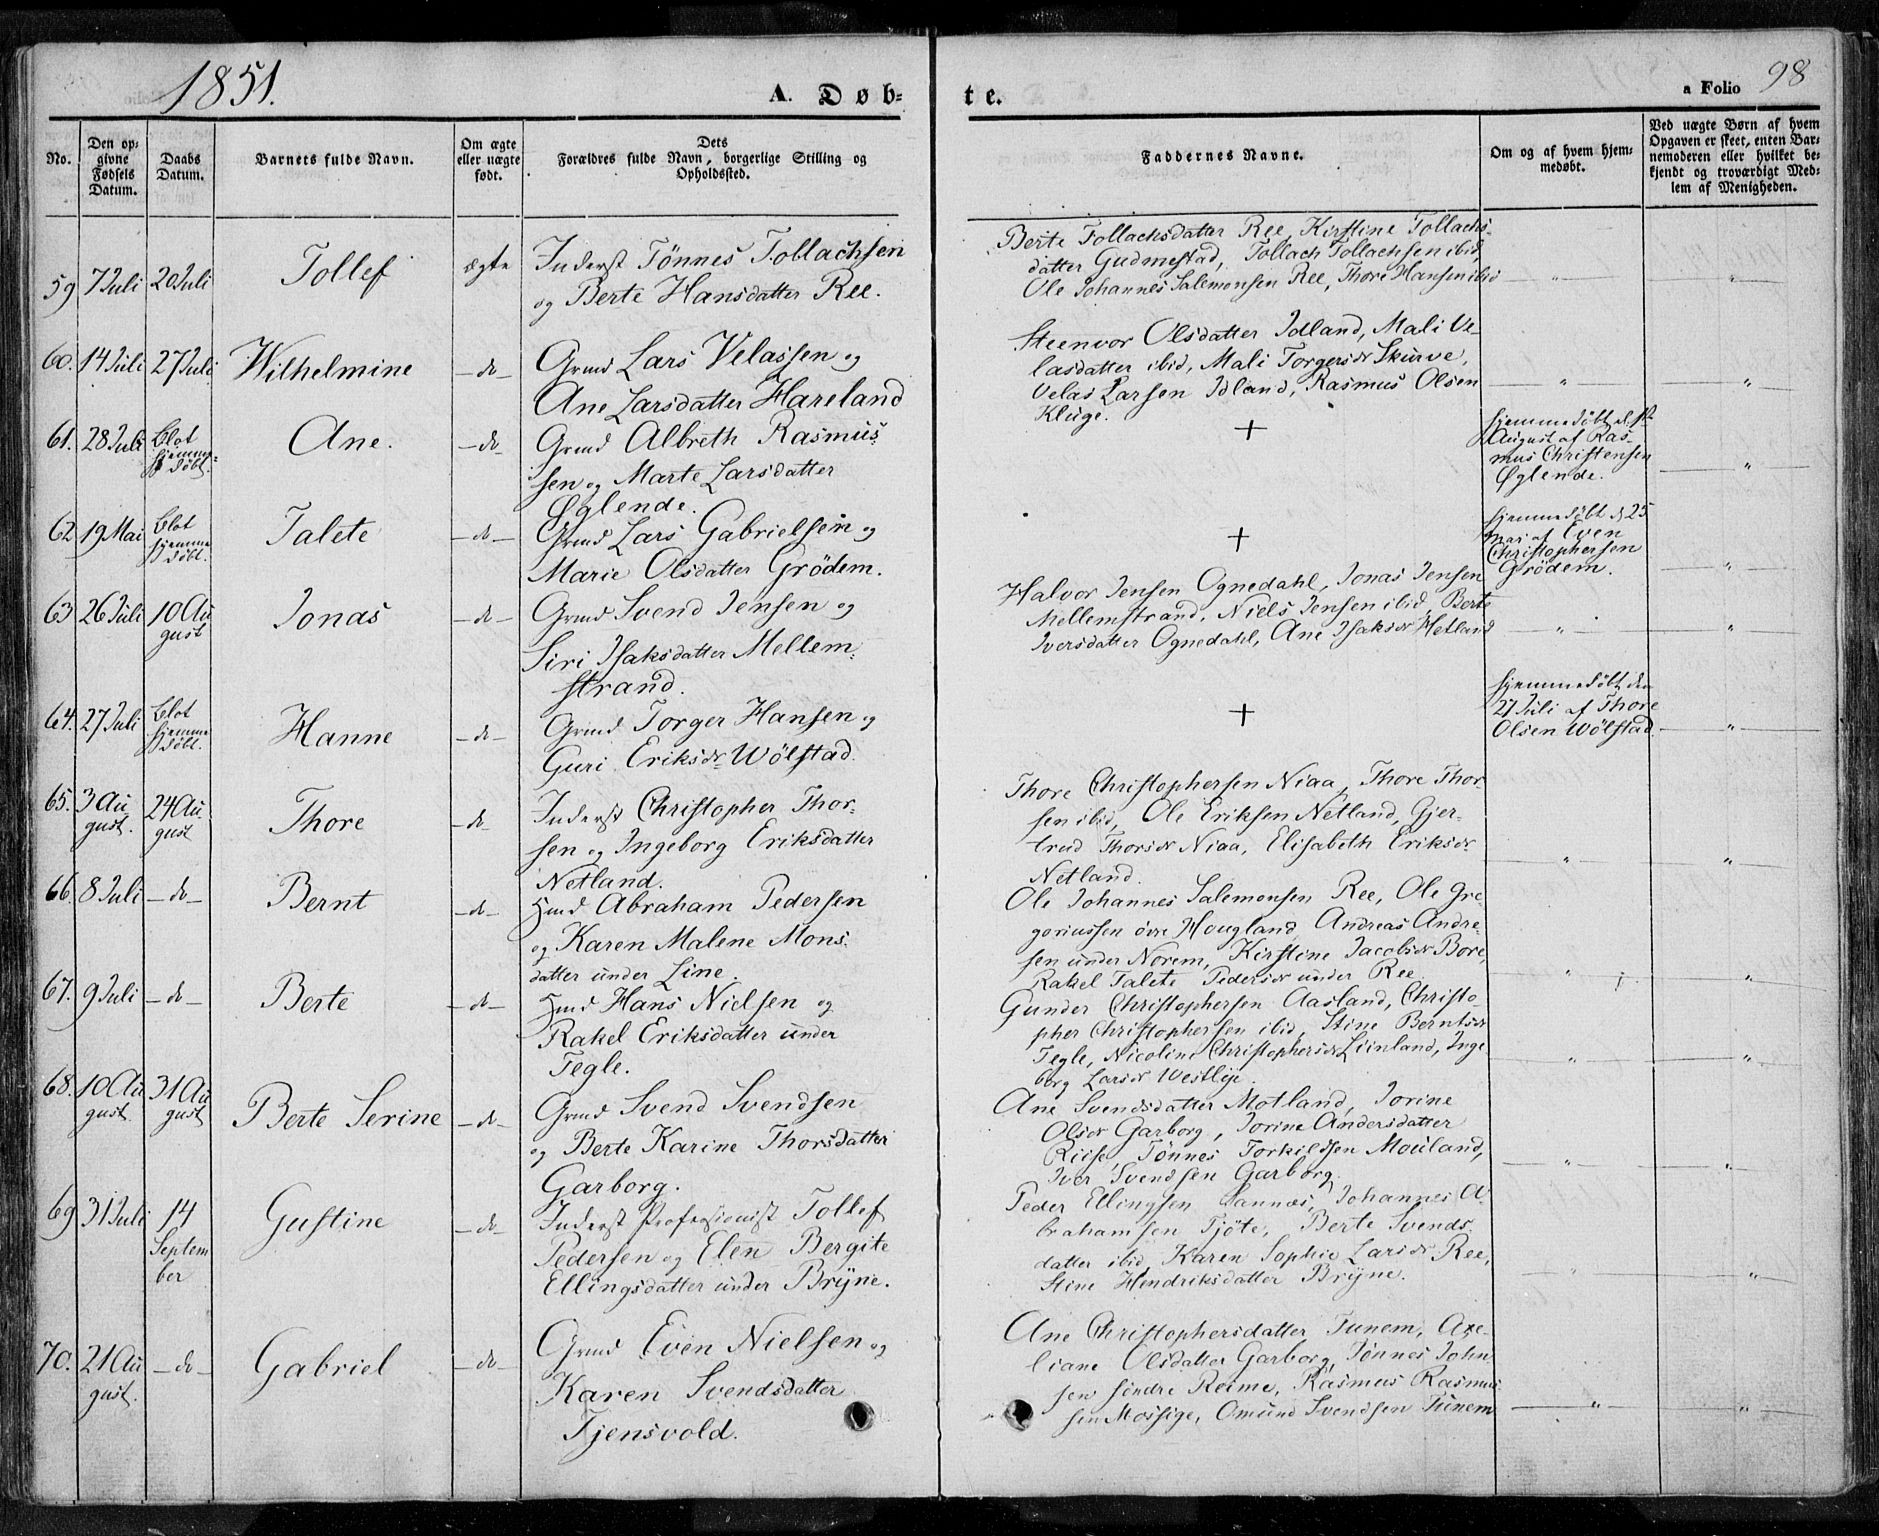 1851.
A. Døb-
te.
a Folio 98
No.
Den op-
givne
Fødsels
Datum.
Daabs
Datum.
Barnets fulde Navn.
Om ægte
eller uægte
født.
Dets
Forældres fulde Navn, borgerlige Stilling og
Opholdssted.
Faddernes Navne.
Om og af hvem hjem-
medøbt.
Ved uægte Børn af hvem
Opgaven er skeet, enten Bar-
nemoderen eller hvilket be-
kjendt og troværdigt Med-
lem af Menigheden.
59 7 Juli 20 Juli Tollef ægte
Inderst Tönnes Tollachsen
og Berte Hansdatter Ree.
Berte Tollachsdatter Ree, Kirstine Tollachs-
datter Gudmestad, Tollach Tollachsen ibid,
Ole Johannes Salemonsen Ree, Thore Hansen ibid
60. 14 Juli 27 Juli Wilhelmine – do –
Grmd Lars Velassen og
Ane Larsdatter Hareland
Steenvor Olsdatter Idland, Mali Ve-
lasdatter ibid, Mali Torgersdr Skurve,
Velas Larsen Idland, Rasmus Olsen
Kluge.
61. 28 Juli Blot
hjemme-
døbt. Ane. – do –
Grmd Albreth Rasmus-
sen og Marte Larsdatter
Øglende.
+
hjemmedöbt d. 1ste
August af Ras-
mus Christensen
Øglende.
62 19 Mai Blot
hjemme
döbt. Talete – do –
Grmd Lars Gabrielsen og
Marie Olsdatter Grödem.
+
hjemmedöbt d. 25
Mai af Even
Christophersen
Grödem.
63 26 Juli 10 Au
gust Jonas – do –
Grmd Svend Jensen og
Siri Isaksdatter Mellem-
strand.
Halvor Jensen Ognedahl, Jonas Jensen
Mellemstrand, Niels Jensen ibid, Berte
Iversdatter Ognedahl, Ane Isaksdr Hetland
64. 27 Juli Blot
hjemme
döbt. Hanne – do –
Grmd Torger Hansen og
Guri Eriksdr Wölstad.
+
hjemmedöbt den
27 Juli af Thore
Olsen Wölstad.
65. 3 Au
gust. 24 Au
gust Thore – do –
Inderst Christopher Thor-
sen og Ingeborg Eriksdatter
Netland.
Thore Christophersen Niaa, Thore Thor-
sen ibid, Ole Eriksen Netland, Gjer-
trud Thorsdr Niaa, Elisabeth Eriksdr
Netland.
66. 8 Juli – do – Bernt – do –
Hmd Abraham Pedersen
og Karen Malene Mons-
datter under Line.
Ole Johannes Salemonsen Ree, Ole Gre-
goriussen övre Hougland, Andreas Andre-
sen under Norem, Kirstine Jacobsdr Bore,
Rakel Talete Pedersdr under Ree
67. 9 Juli – do – Berte – do –
Hmd Hans Nielsen og
Rakel Eriksdatter under
Tegle.
Gunder Christophersen Aasland, Christo-
pher Christophersen ibid, Stine Berntsdr
Tegle, Nicoline Christophersdr Liinland, Inge
borg Larsdr Westlye.
68. 10 Au
gust. 31 Au
gust Berte Serine – do –
Grmd Svend Svendsen
og Berte Karine Thorsdatter
Garborg.
Ane Svendsdatter Motland, Jorine
Olsdr Garborg, Jorine Andersdatter
Riise, Tönnes Torkildsen Mouland,
Iver Svendsen Garborg.
69 31 Juli 14
Septem
ber Gustine – do –
Inderst Professionist Tollef
Pedersen og Elen Bergite
Ellingsdatter under Bryne.
Peder Ellingsen Sannæs, Johannes A-
brahamsen Tjöte, Berte Svends-
datter ibid, Karen Sophie Larsdr Ree,
Stine Hendriksdatter Bryne.
70. 21 Au
gust. – do – Gabriel – do –
Grmd Even Nielsen og
Karen Svendsdatter
Tjensvold.
Ane Christophersdatter Tunem, Axe-
liane Olsdatter Garborg, Tönnes John
sen söndre Reime, Rasmus Rasmus-
sen Mossige, Omund Svendsen Tunem